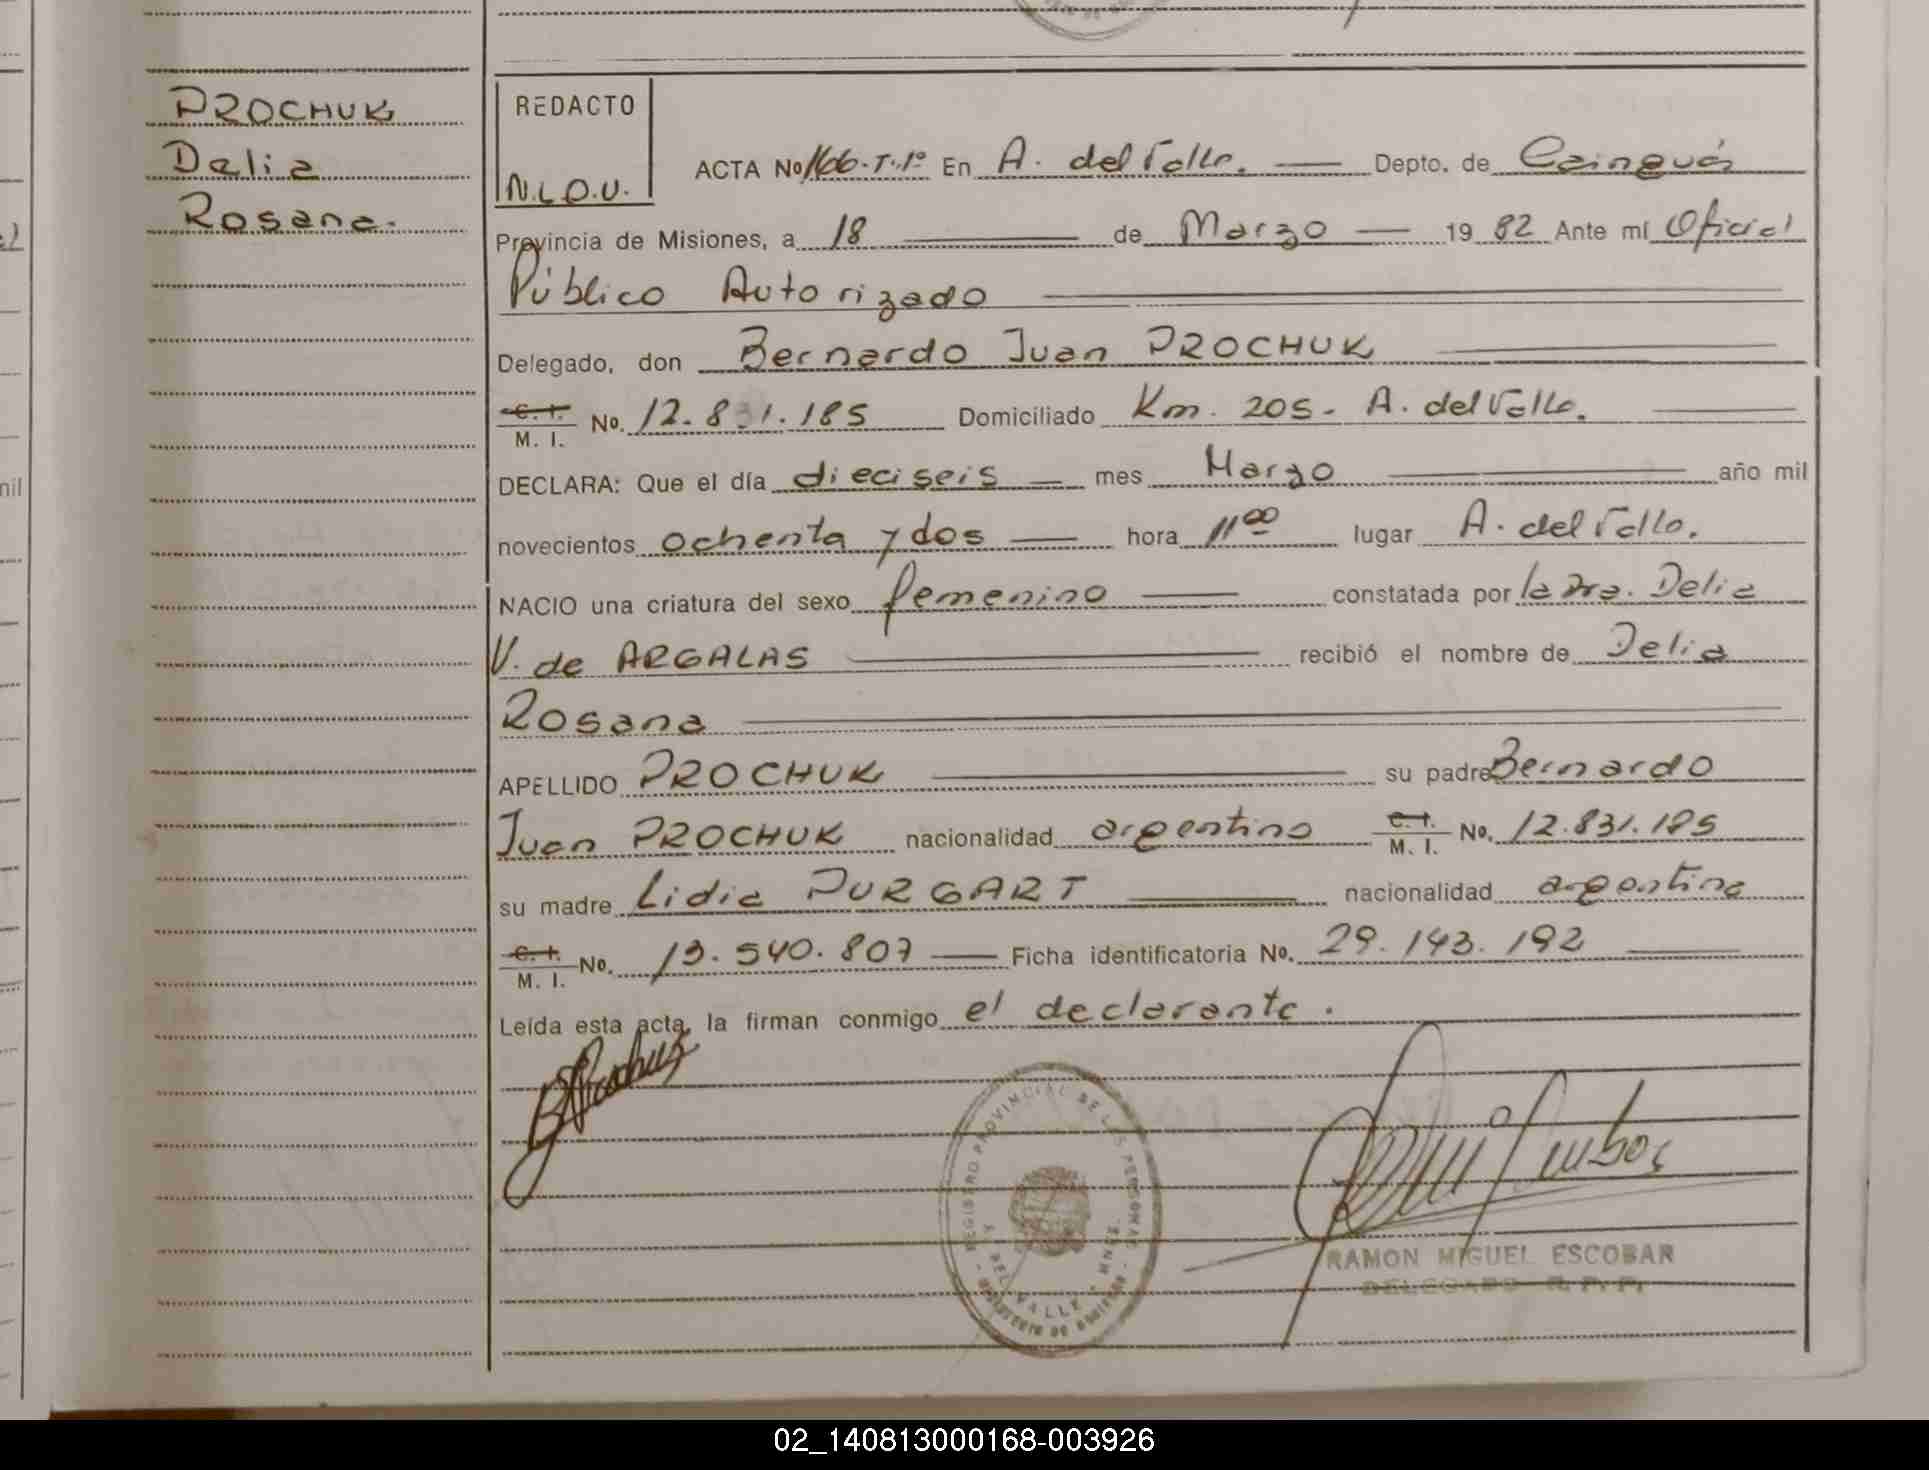 PROCHUK
Delia
Rosana.
REDACTO
N.L.O.U.
ACTA No 166-T-1º En A. del Valle. Depto. de Cainguás
Provincia de Misiones, a 18 de Marzo 19 82 Ante mí Oficial
Público Autorizado
Delegado, don Bernardo Juan PROCHUK
C. I. M. I. No. 12.831.185 Domiciliado Km. 205- A. del Valle.
DECLARA: Que el día dieciseis mes Marzo año mil
novecientos ochenta y dos hora 11 00 lugar A. del Valle.
NACIO una criatura del sexo femenino constatada por la Dra. Delia
V. de ARGALAS recibió el nombre de Delia
Rosana
APELLIDO PROCHUK su padre Bernardo
Juan PROCHUK nacionalidad argentino C. I. M. I. No. 12.831.185
su madre Lidia PURGART nacionalidad argentina
C. I. M. I. No. 13.540.807 Ficha identificatoria No. 29.143.192
Leída esta acta, la firman conmigo el declarante.
BProchuk
REGISTRO PROVINCIAL DE LAS PERSONAS
A. DEL VALLE
RAMON MIGUEL ESCOBAR
DELEGADO R. P. P.
02_140813000168-003926